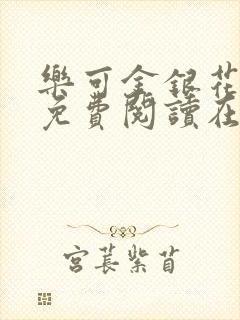 樂可金銀花
免費閱讀在
宮萇紫苜